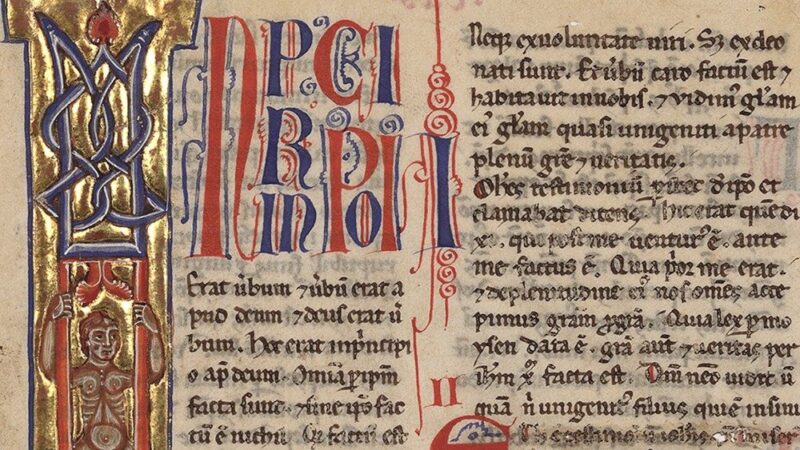 IN PRINCIPIO
Erat ûbum ⁊ ûbū erat a
pud deum ⁊ deus erat û
bum. Hoc erat inp̃ncipi
o ap̃ deum. Omĩa p̱ ip̃m
facta sunt. ⁊ sine ip̃o fac
tū ē nichil. Q̃ factū est
Neq; ex uoluntate uiri. Sȝ ex deo
nati sunt. Et ûbū caro factū est ⁊
habitauit in nobis. ⁊ vidim᷒ gl̃am
ei᷒ gl̃am quasi unigeniti a patre
plenū gr̃e ⁊ ueritatis.
Ioh̃es testimoniū ꝑhibet de ip̃o et
clamabat dicens. Hic erat quē di
xi. qui post me uentur᷒ ē. ante
me factus ē. Quia p̃or me erat.
⁊ de plenitudine ei᷒ nos om̃es acce
pimus gr̃am ꝓ gr̃a. Quia lex ꝑ mo
ysen data ē. gr̃a aut̃ ⁊ ueritas per
ih̃m x̃ facta est. Dm̃ nēo uidit ū
quā n̄ unigenit᷒ filius qui ē in sinu
II